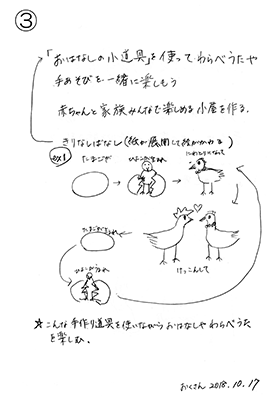 ③
「おはなしの小道具」を使って、わらべうたや
手あそびを一緒に楽しもう
赤ちゃんと家族みんなで楽しめる小屋を作る.
きりなしばなし(絵が展開して絵がかわる)
ex1
たまごが
ひよこがうまれ
にわとりになって
けっこんして
たまごがうまれ
ひよこがうまれ
☆こんな手作り道具を使いながらおはなしやわらべうた
を楽しむ.
おくさん 2018.10.17